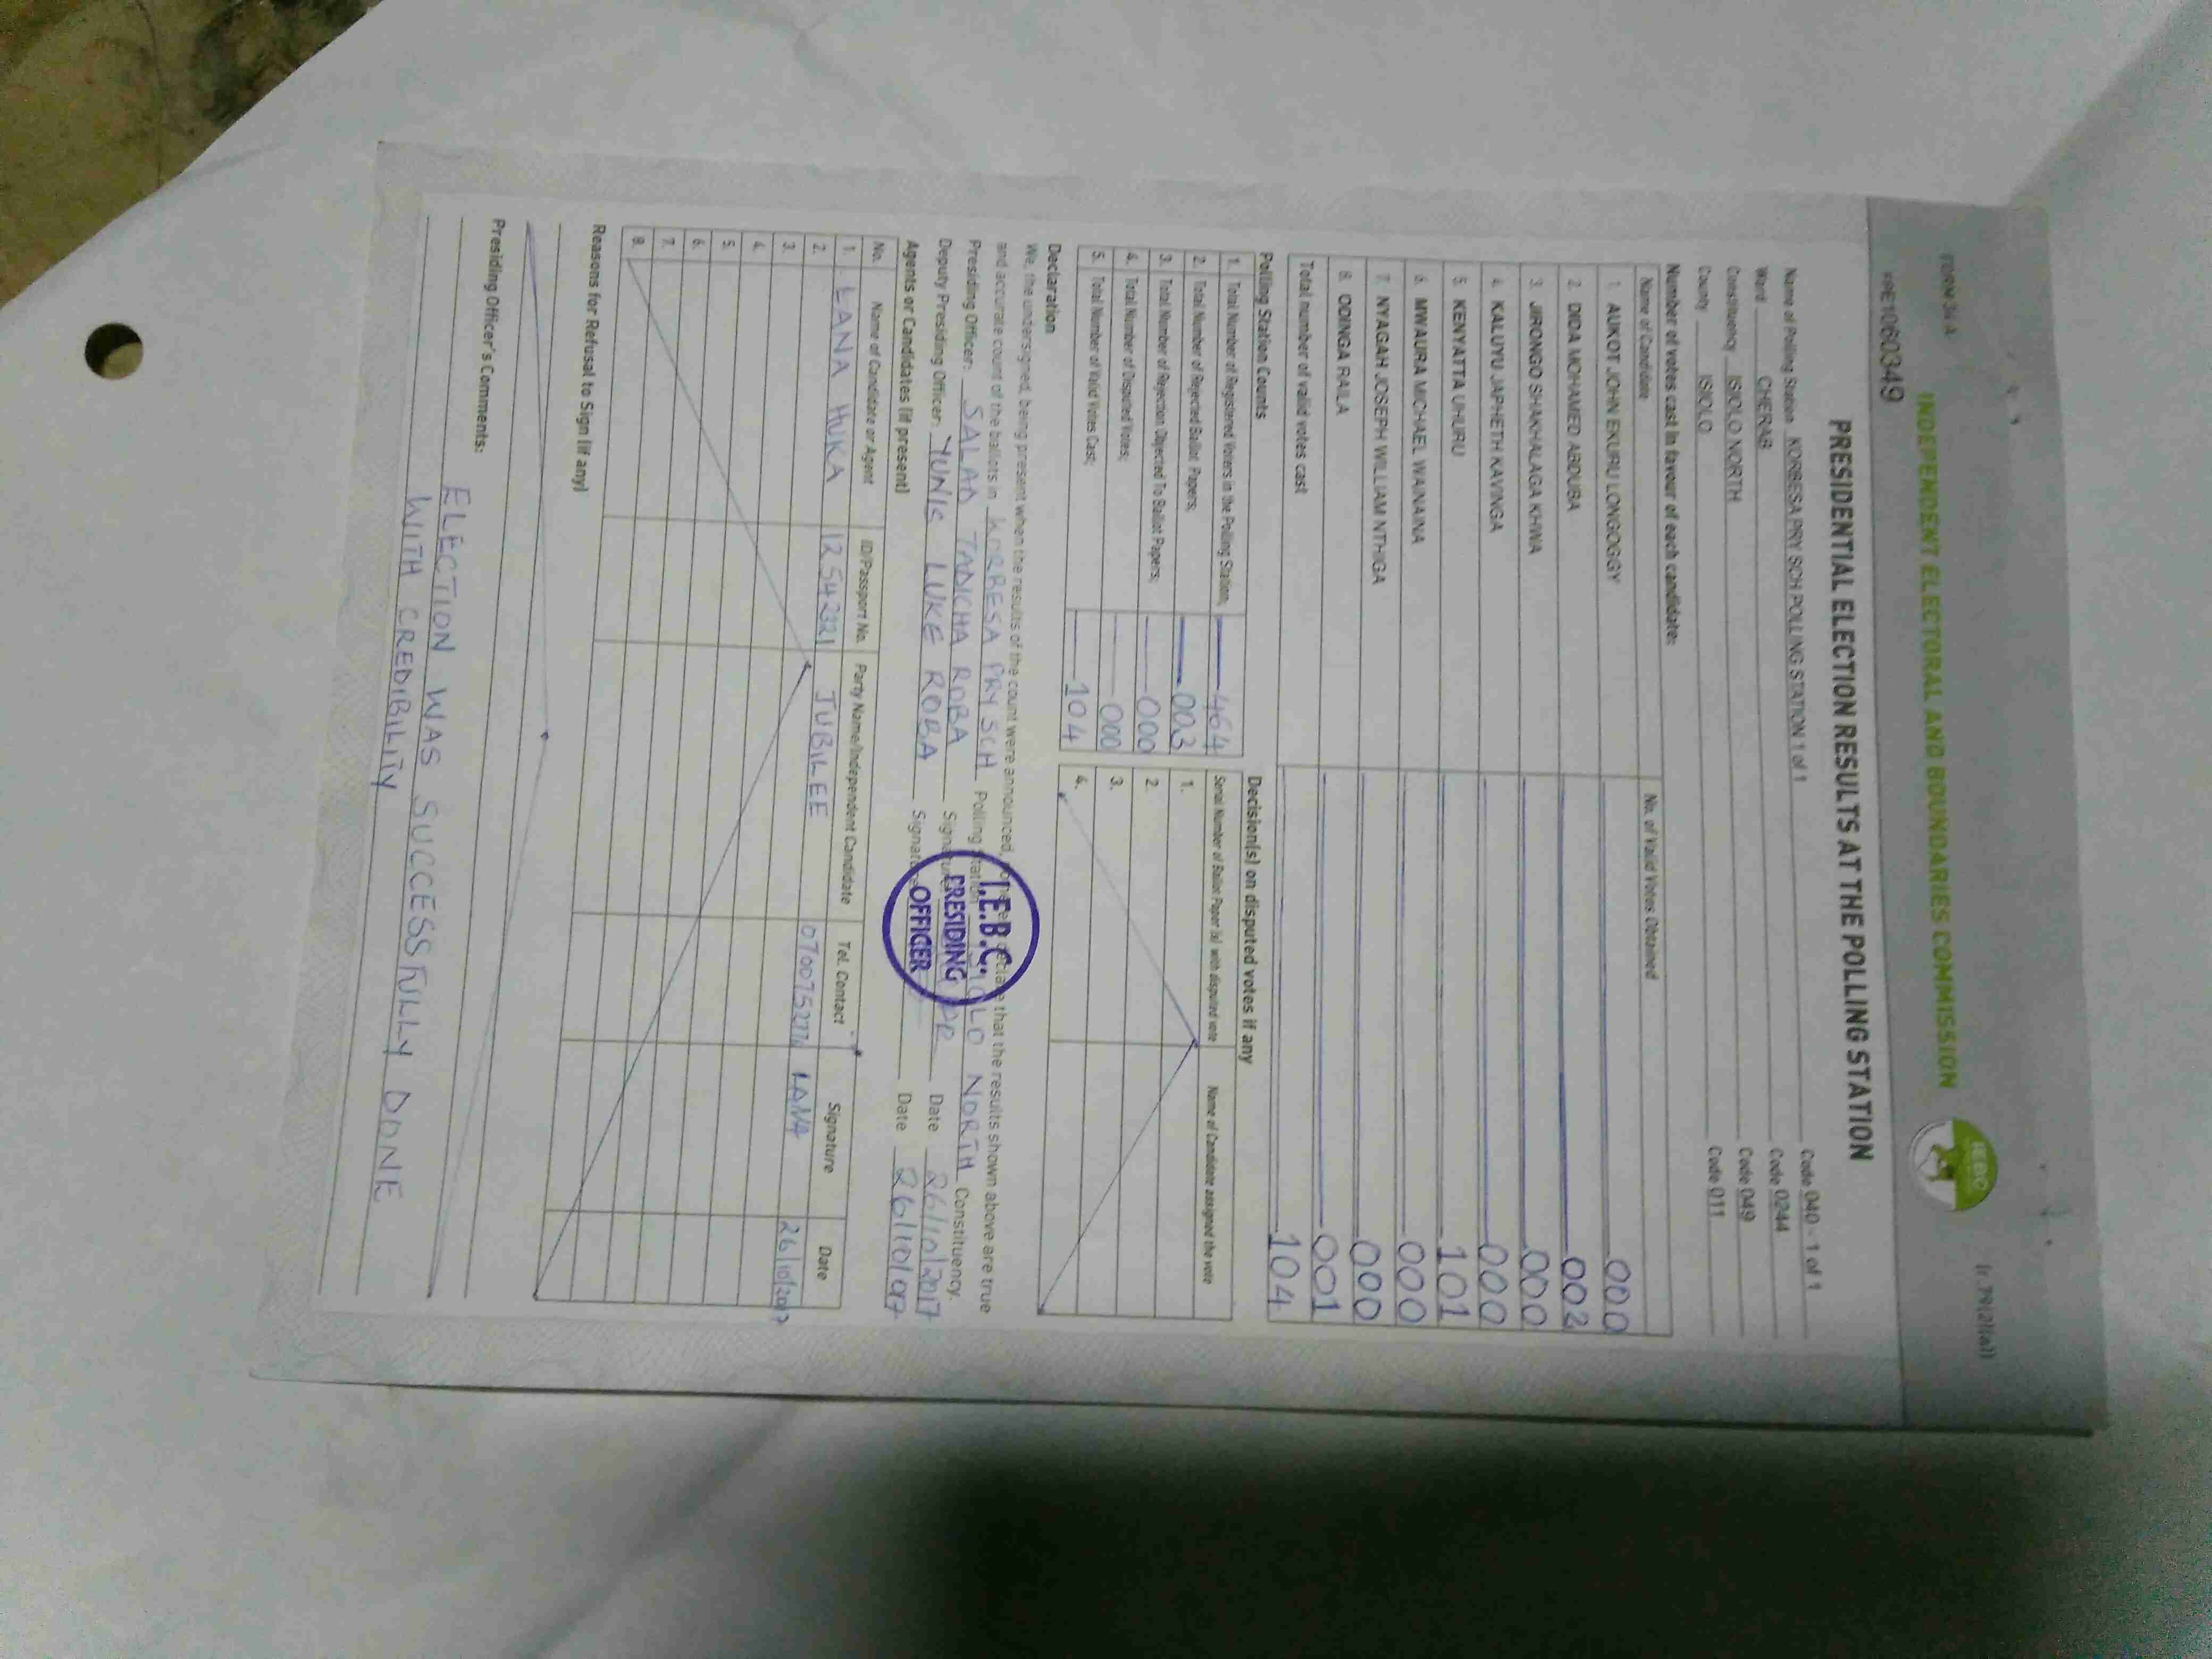 FORM 34 A
(r.79(2)(a))
INDEPENDENT ELECTORAL AND BOUNDARIES COMMISSION
IEBC
1060349
PRESIDENTIAL ELECTION RESULTS AT THE POLLING STATION
Name of Polling Station KORBESA PRY SCH POLLING STATION 1 of 1 Code 040 - 1 of 1
Ward CHERAB Code 0244
Constituency ISIOLO NORTH Code 049
County ISIOLO Code 011
Number of votes cast in favour of each candidate:
Name of Candidate No. of Valid Votes Obtained
1. AUKOT JOHN EKURU LONGOGGY 000
2. DIDA MOHAMED ABDUBA 002
3. JIRONGO SHAKHALAGA KHWA 000
4. KALUYU JAPHETH KAVINGA 000
5. KENYATTA UHURU 101
6. MWAURA MICHAEL WAINAINA 000
7. NYAGAH JOSEPH WILLIAM NTHIGA 000
8. ODINGA RAILA 001
Total number of valid votes cast 104
Polling Station Counts
1. Total Number of Registered Voters in the Polling Station; 464
2. Total Number of Rejected Ballot Papers; 003
3. Total Number of Rejection Objected To Ballot Papers; 000
4. Total Number of Disputed Votes; 000
5. Total Number of Valid Votes Cast; 104
Decision(s) on disputed votes if any
Serial Number of Ballot Paper (s) with disputed vote Name of Candidate assigned the vote
1.
2.
3.
4.
Declaration
We, the undersigned, being present when the results of the count were announced, do hereby declare that the results shown above are true
and accurate count of the ballots in KORBESA PRY SCH Polling Station ISIOLO NORTH Constituency.
Presiding Officer: SALAD TADICHA ROBA Signature Date 26/10/2017
Deputy Presiding Officer: YUNIS LUKE ROBA Signature Date 26/10/017
I.E.B.C.
PRESIDING
OFFICER
Agents or Candidates (if present)
No. Name of Candidate or Agent ID/Passport No. Party Name/Independent Candidate Tel. Contact Signature Date
1. LANA HUKA 12542321 JUBILEE LANA 26/10/2017
2.
3.
4.
5.
6.
7.
8.
Reasons for Refusal to Sign (if any)
Presiding Officer's Comments:
ELECTION WAS SUCCESSFULLY DONE
WITH CREDIBILITY